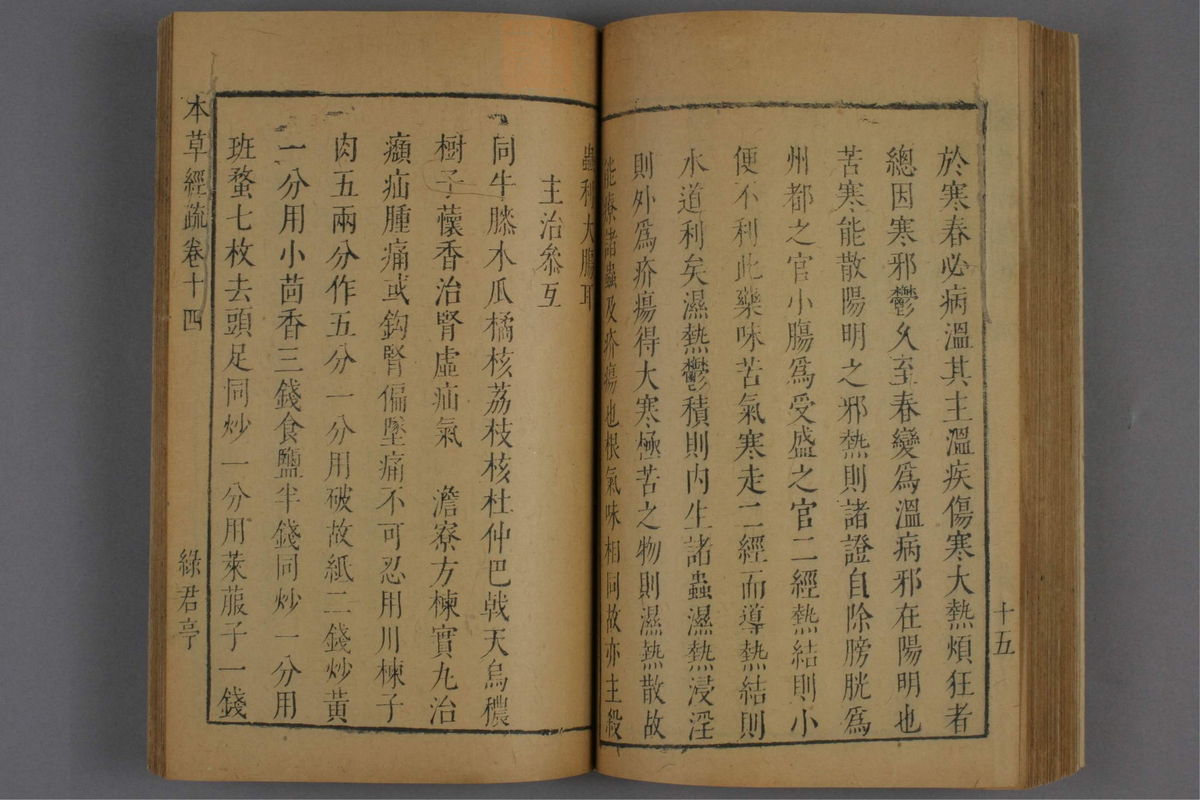 於寒春必病溫其主溫疾傷寒大熱煩狂者
總因寒邪鬱久至春變爲溫病邪在陽明也
苦寒能散陽明之邪熱則諸證自除膀胱爲
州都之官小腸爲受盛之官二經熱結則小
便不利此藥味苦氣寒走二經而導熱結則
水道利矣濕熱鬱積則内生諸蟲濕熱浸淫
則外爲疥瘍得大寒極苦之物則濕熱散故
能療諸蟲及疥瘍也根氣味相同故亦主殺
十五
蟲利大腸耳
主治參互
同牛膝木瓜橘核荔枝核杜仲巴戟天烏藥
樹子蘹香治腎虛疝氣 澹寮方楝實丸治
㿗疝腫痛或鈎腎偏墜痛不可忍用川楝子
肉五兩分作五分一分用破故紙二錢炒黃
一分用小茴香三錢食鹽半錢同炒一分用
班蝥七枚去頭足同炒一分用萊菔子一錢
本草經疏卷十四
綠君亭